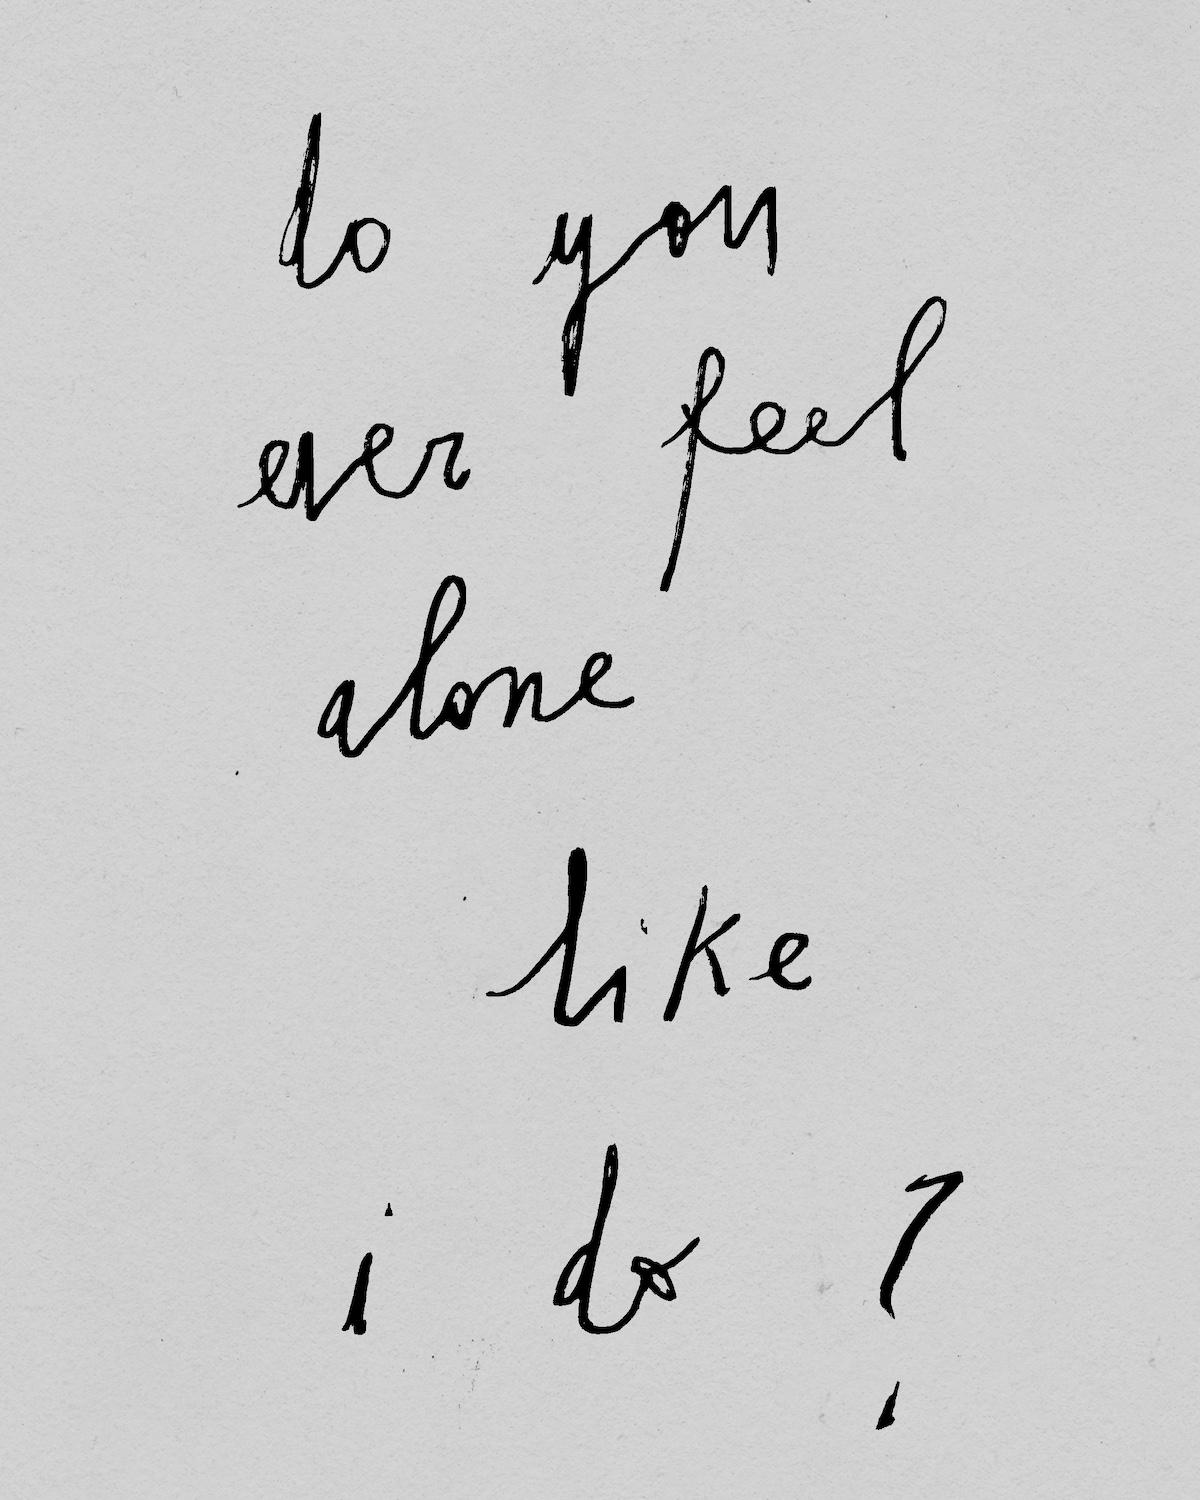 do you
ever feel
alone
like
i do ?